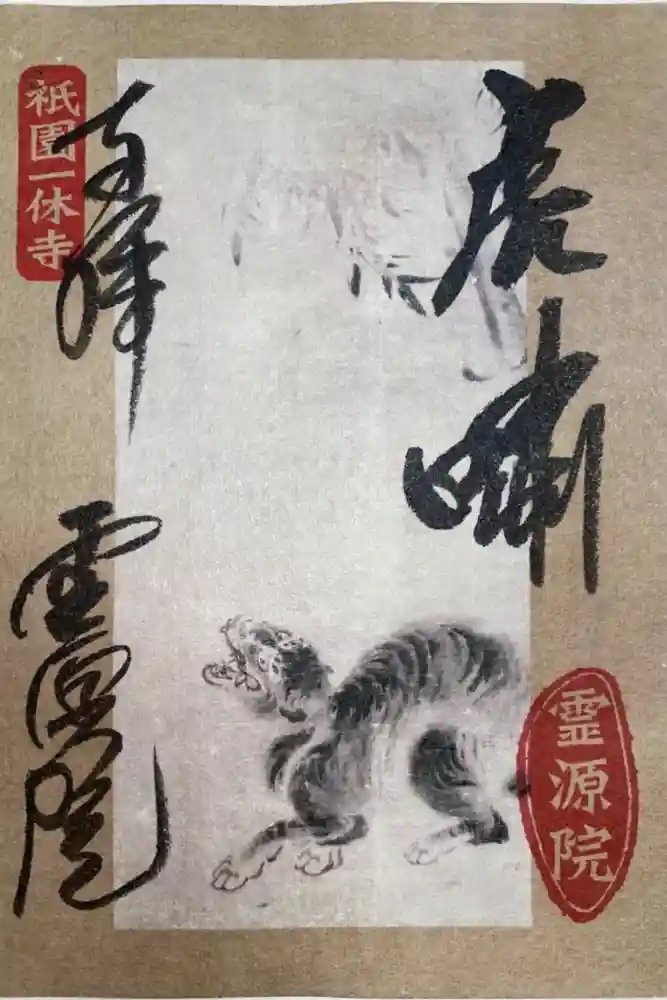 虎嘯
奉拝
霊源院
祇園一休寺
霊源院